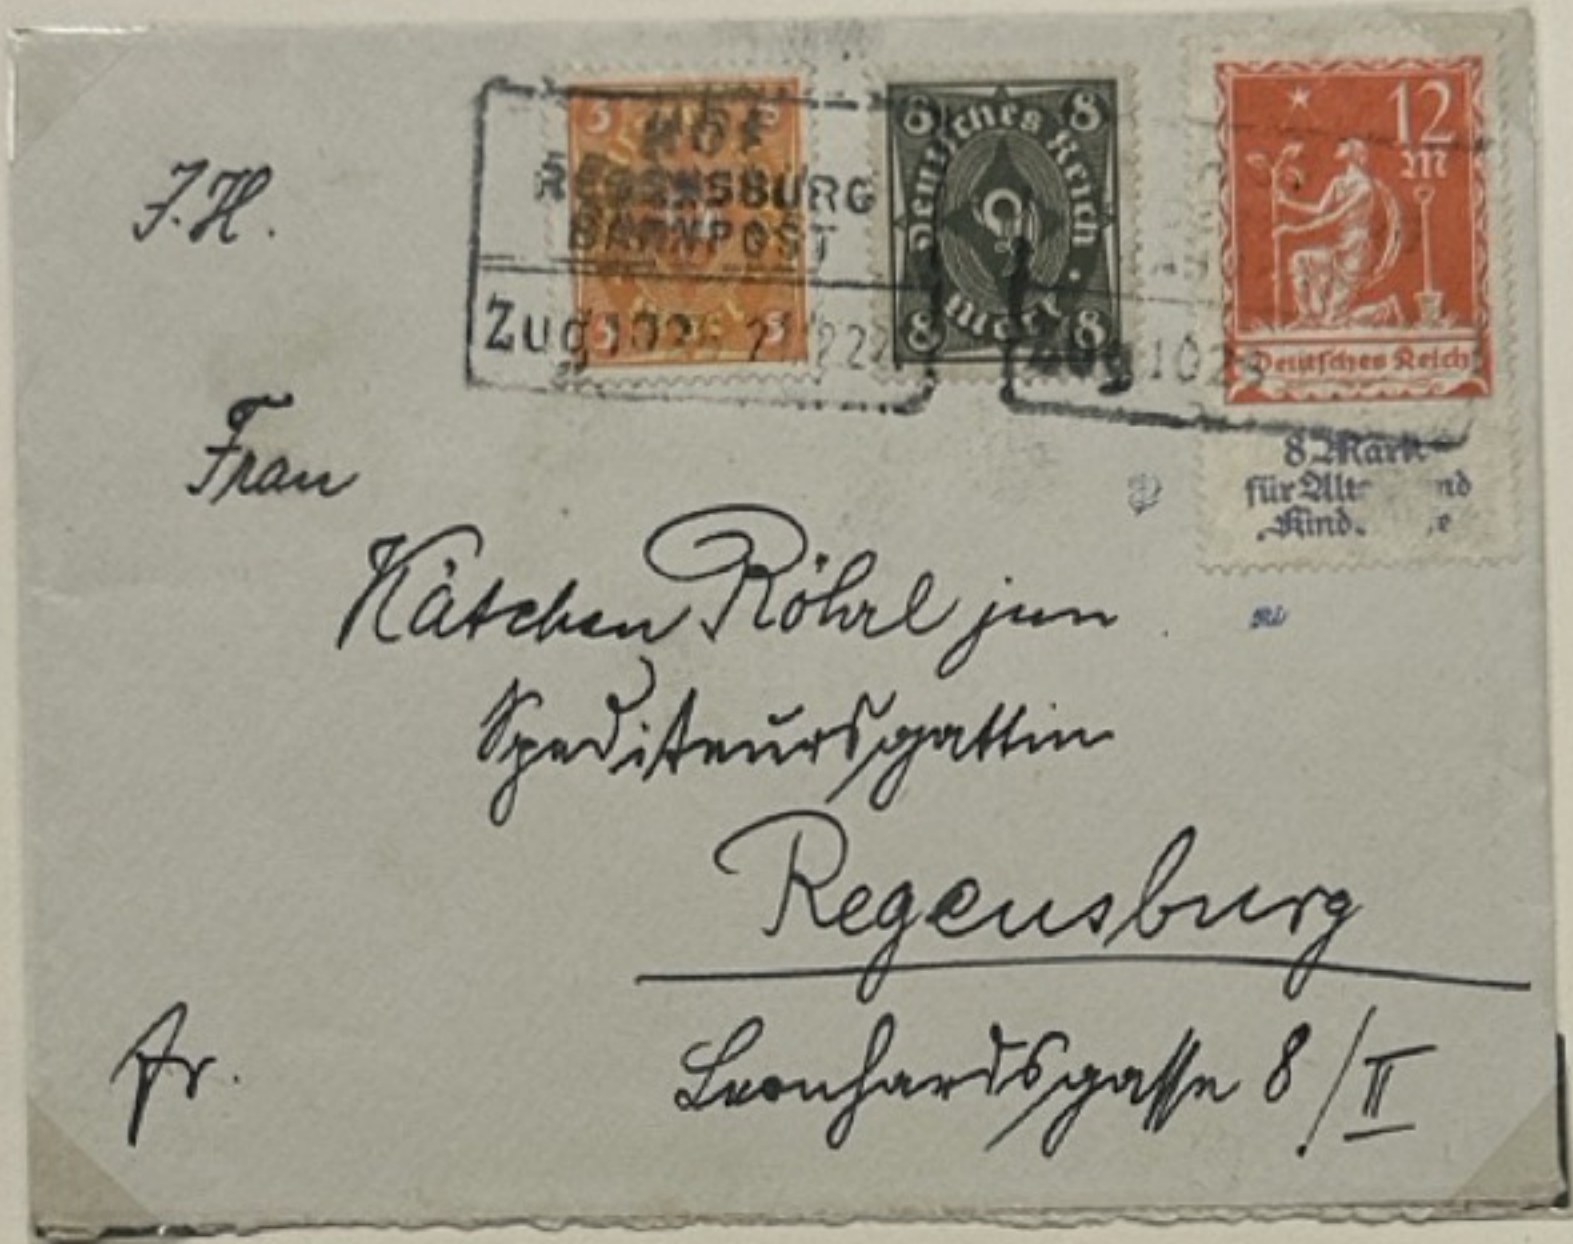 HOF
REGENSBURG
BAHNPOST
Zug 102
5 5
5 5
8 8
Deutsches Reich
Mark
8 8
12
M
Deutsches Reich
Zug 102
8 Mark
für Alte nd
Kind e
J. H.
Frau
Kätchen Röhrl jun
Spediteursgattin
Regensburg
Fr.
Leonhardsgasse 8/II